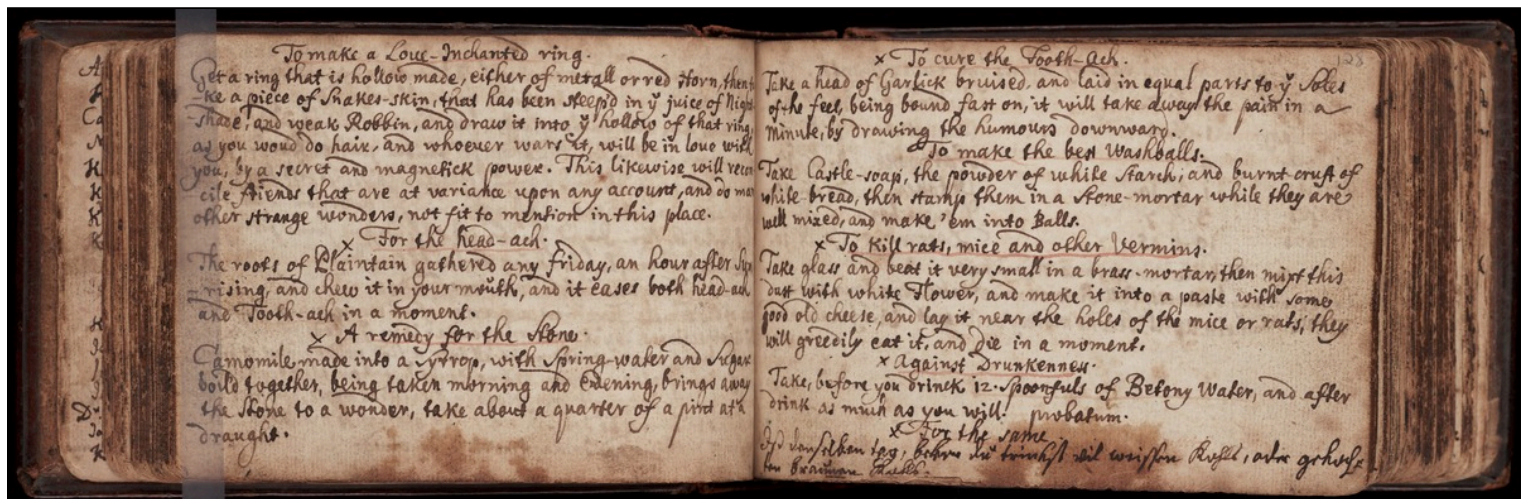 To make a Love-Inchanted ring.
Get a ring that is hollow made, either of metall or red Horn, then ta-
ke a piece of Snakes-skin, that has been steep'd in ÿ juice of Night
shade, and weak Robbin, and draw it into ÿ hollow of that ring,
as you woud do hair, and whoever wars it, will be in love with
you, by a secret and magnetick power. This likewise will recon
cile friends that are at variance upon any account, and do man
other strange wonders, not fit to mention in this place.
x For the head-ach.
The roots of Plaintain gathered any friday, an hour after Sun
rising, and chew it in your mouth, and it eases both head-ach
and Tooth-ach in a moment.
x A remedy for the Stone.
Camomile made into a Syrrop, with Spring-water and Sugar
boild together, being taken morning and Evening, brings away
the Stone to a wonder, take about a quarter of a pint at a
draught.
128
x To cure the Tooth-Ach.
Take a head of Garlick bruised, and laid in equal parts to ÿ Soles
of the feet, being bound fast on, it will take away the pain in a
minute, by drawing the humours downward.
To make the best Washballs.
Take Castle-soap, the powder of white Starch, and burnt crust of
white-bread, then stamp them in a Stone-mortar while they are
well mixed, and make 'em into Balls.
x To kill rats, mice and other Vermins.
Take glass and beat it very small in a brass-mortar, then mixt this
dust with white Flower, and make it into a paste with some
good old cheese, and lay it near the holes of the mice or rats, they
will greedily eat it, and die in a moment.
x Against Drunkenness.
Take, before you drinck 12. Spoonfuls of Betony Water, and after
drink as much as you will. probatum.
x For the same
denselben tag, du trinkst vil weissen Kohl, oder gekoch
ten braunen Kohl.